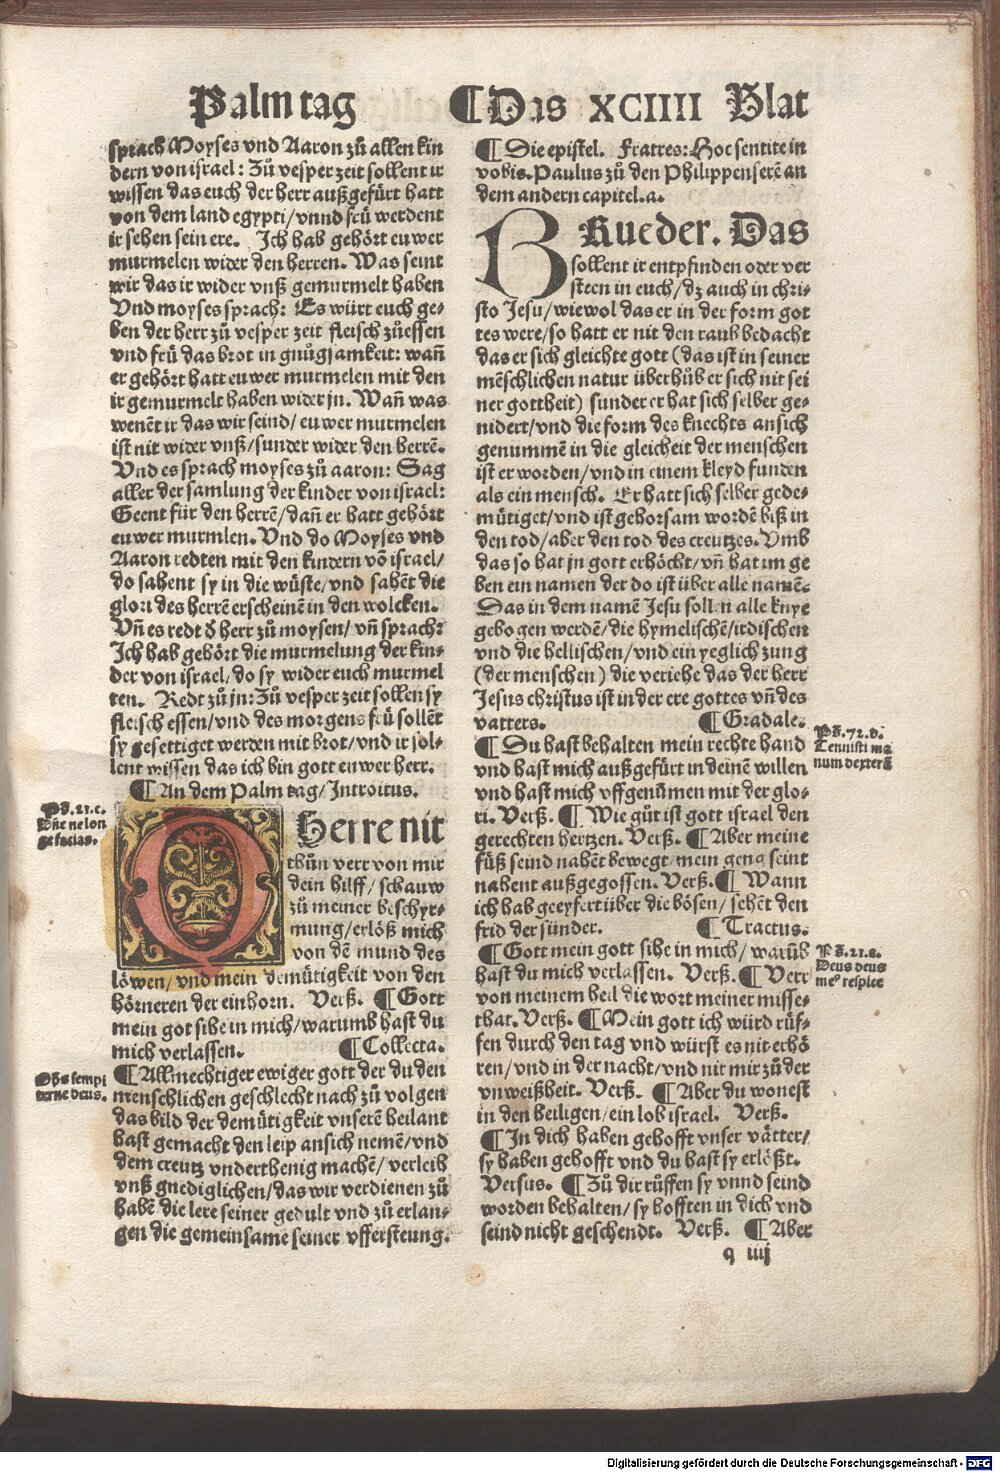 Palm tag
¶ Das XCIIII Blat
sprach Moyses vnd Aaron zů allen kin
dern von israel: Zů vesper zeit sollent ir
wissen das euch der herr außgefürt hatt
von dem land egypti/vnnd frü werdent
ir sehen sein ere. Ich hab gehört euwer
murmelen wider den herren. Was seint
wir das ir wider vnß gemurmelt haben
Vnd moyses sprach: Es würt euch ge-
ben der herr zů vesper zeit fleisch zů essen
vnd frü das brot in gnůgsamkeit: wañ
er gehört hatt euwer murmelen mit den
ir gemurmelt haben wider jn. Wañ was
wenēt ir das wir seind/ euwer murmelen
ist nit wider vnß/sunder wider den herrē.
Vnd es sprach moyses zů aaron: Sag
aller der samlung der kinder von israel:
Geent für den herrē/dañ er hatt gehört
euwer murmlen. Vnd do Moyses vnd
Aaron redten mit den kindern vō israel/
do sahent sy in die wüste/vnd sahēt die
glori des herrē erscheinē in den wolcken.
Vñ es redt d̄ herr zů moysen/ vñ sprach:
Ich hab gehört die murmelung der kin-
der von israel/do sy wider euch murmel
ten. Redt zů jn: Zů vesper zeit sollen sy
fleisch essen/vnd des morgens frü sollēt
sy gesettiget werden mit brot/vnd ir sol-
lent wissen das ich bin gott euwer herr.
¶ An dem Palm tag/Introitus.
Ps. 21.c.
Dñe ne lon
ge facias.
O Herre nit
thůn verr von mir
dein hilff/ schauw
zů meiner beschyr-
mung/erlöß mich
von dē mund des
löwen/ vnd mein demütigkeit von den
hörneren der einhorn. Verß. ¶ Gott
mein got sihe in mich/warumb hast du
mich verlassen. ¶ Collecta.
Oñs sempi
terne deus.
¶ Allmechtiger ewiger gott der du den
menschlichen geschlecht nach zů volgen
das bild der demütigkeit vnserē heilant
hast gemacht den leip an sich nemē/vnd
dem creutz vnderthenig machē/ verleih
vnß gnediglichen/das wir verdienen zů
habē die lere seiner gedult vnd zů erlan-
gen die gemeinsame seiner vffersteung.
¶ Die epistel. Fratres: Hoc sentite in
vobis. Paulus zů den Philippenserē an
dem andern capitel.a.
BRueder. Das
sollent ir entpfinden oder ver
steen in euch/dz auch in chri-
sto Jesu/wiewol das er in der form got
tes were/so hatt er nit den raub bedacht
das er sich gleichte gott (das ist in seiner
mēschlichen natur überhůb er sich nit sei
ner gottheit) sunder er hat sich selber ge-
nidert/vnd die form des knechts an sich
genummen in die gleicheit der menschen
ist er worden/vnd in einem kleyd funden
als ein mensch. Er hatt sich selber gede-
mütiget/vnd ist gehorsam wordē biß in
den tod/aber den tod des creutzes. Vmb
das so hat jn gott erhöcht/vñ hat im ge
ben ein namen der do ist über alle namē.
Das in dem namē Jesu sollen alle knye
gebogen werdē/die hymelischē/irdischen
vnd die hellischen/vnd ein yeglich zung
(der menschen) die veriehe das der herr
Jesus christus ist in der ere gottes vñ des
vatters. ¶ Gradale.
Ps. 72.d.
Tenuisti ma
num dexterā
¶ Du hast behalten mein rechte hand
vnd hast mich außgefürt in deinē willen
vnd hast mich vffgenūmen mit der glo-
ri. Verß. ¶ Wie gůt ist gott israel den
gerechten hertzen. Verß. ¶ Aber meine
füß seind nahēt bewegt/mein geng seint
nahent außgegossen. Verß. ¶ Wann
ich hab geeyfert über die bösen/ sehēt den
frid der sünder. ¶ Tractus.
Ps. 21.a.
Deus deus
meꝰ respice
¶ Gott mein gott sihe in mich/ warūb
hast du mich verlassen. Verß. ¶ Verr
von meinem heil die wort meiner misse-
that. Verß. ¶ Mein gott ich würd rüf-
fen durch den tag vnd würst es nit erhö
ren/vnd in der nacht/vnd nit mir zů der
vnweißheit. Verß. ¶ Aber du wonest
in den heiligen/ein lob israel. Verß.
¶ In dich haben gehofft vnser vätter/
sy haben gehofft vnd du hast sy erlößt.
Versus. ¶ Zů dir rüffen sy vnnd seind
worden behalten/ sy hofften in dich vnd
seind nicht geschendt. Verß. ¶ Aber
q iiij
Digitalisierung gefördert durch die Deutsche Forschungsgemeinschaft - DFG